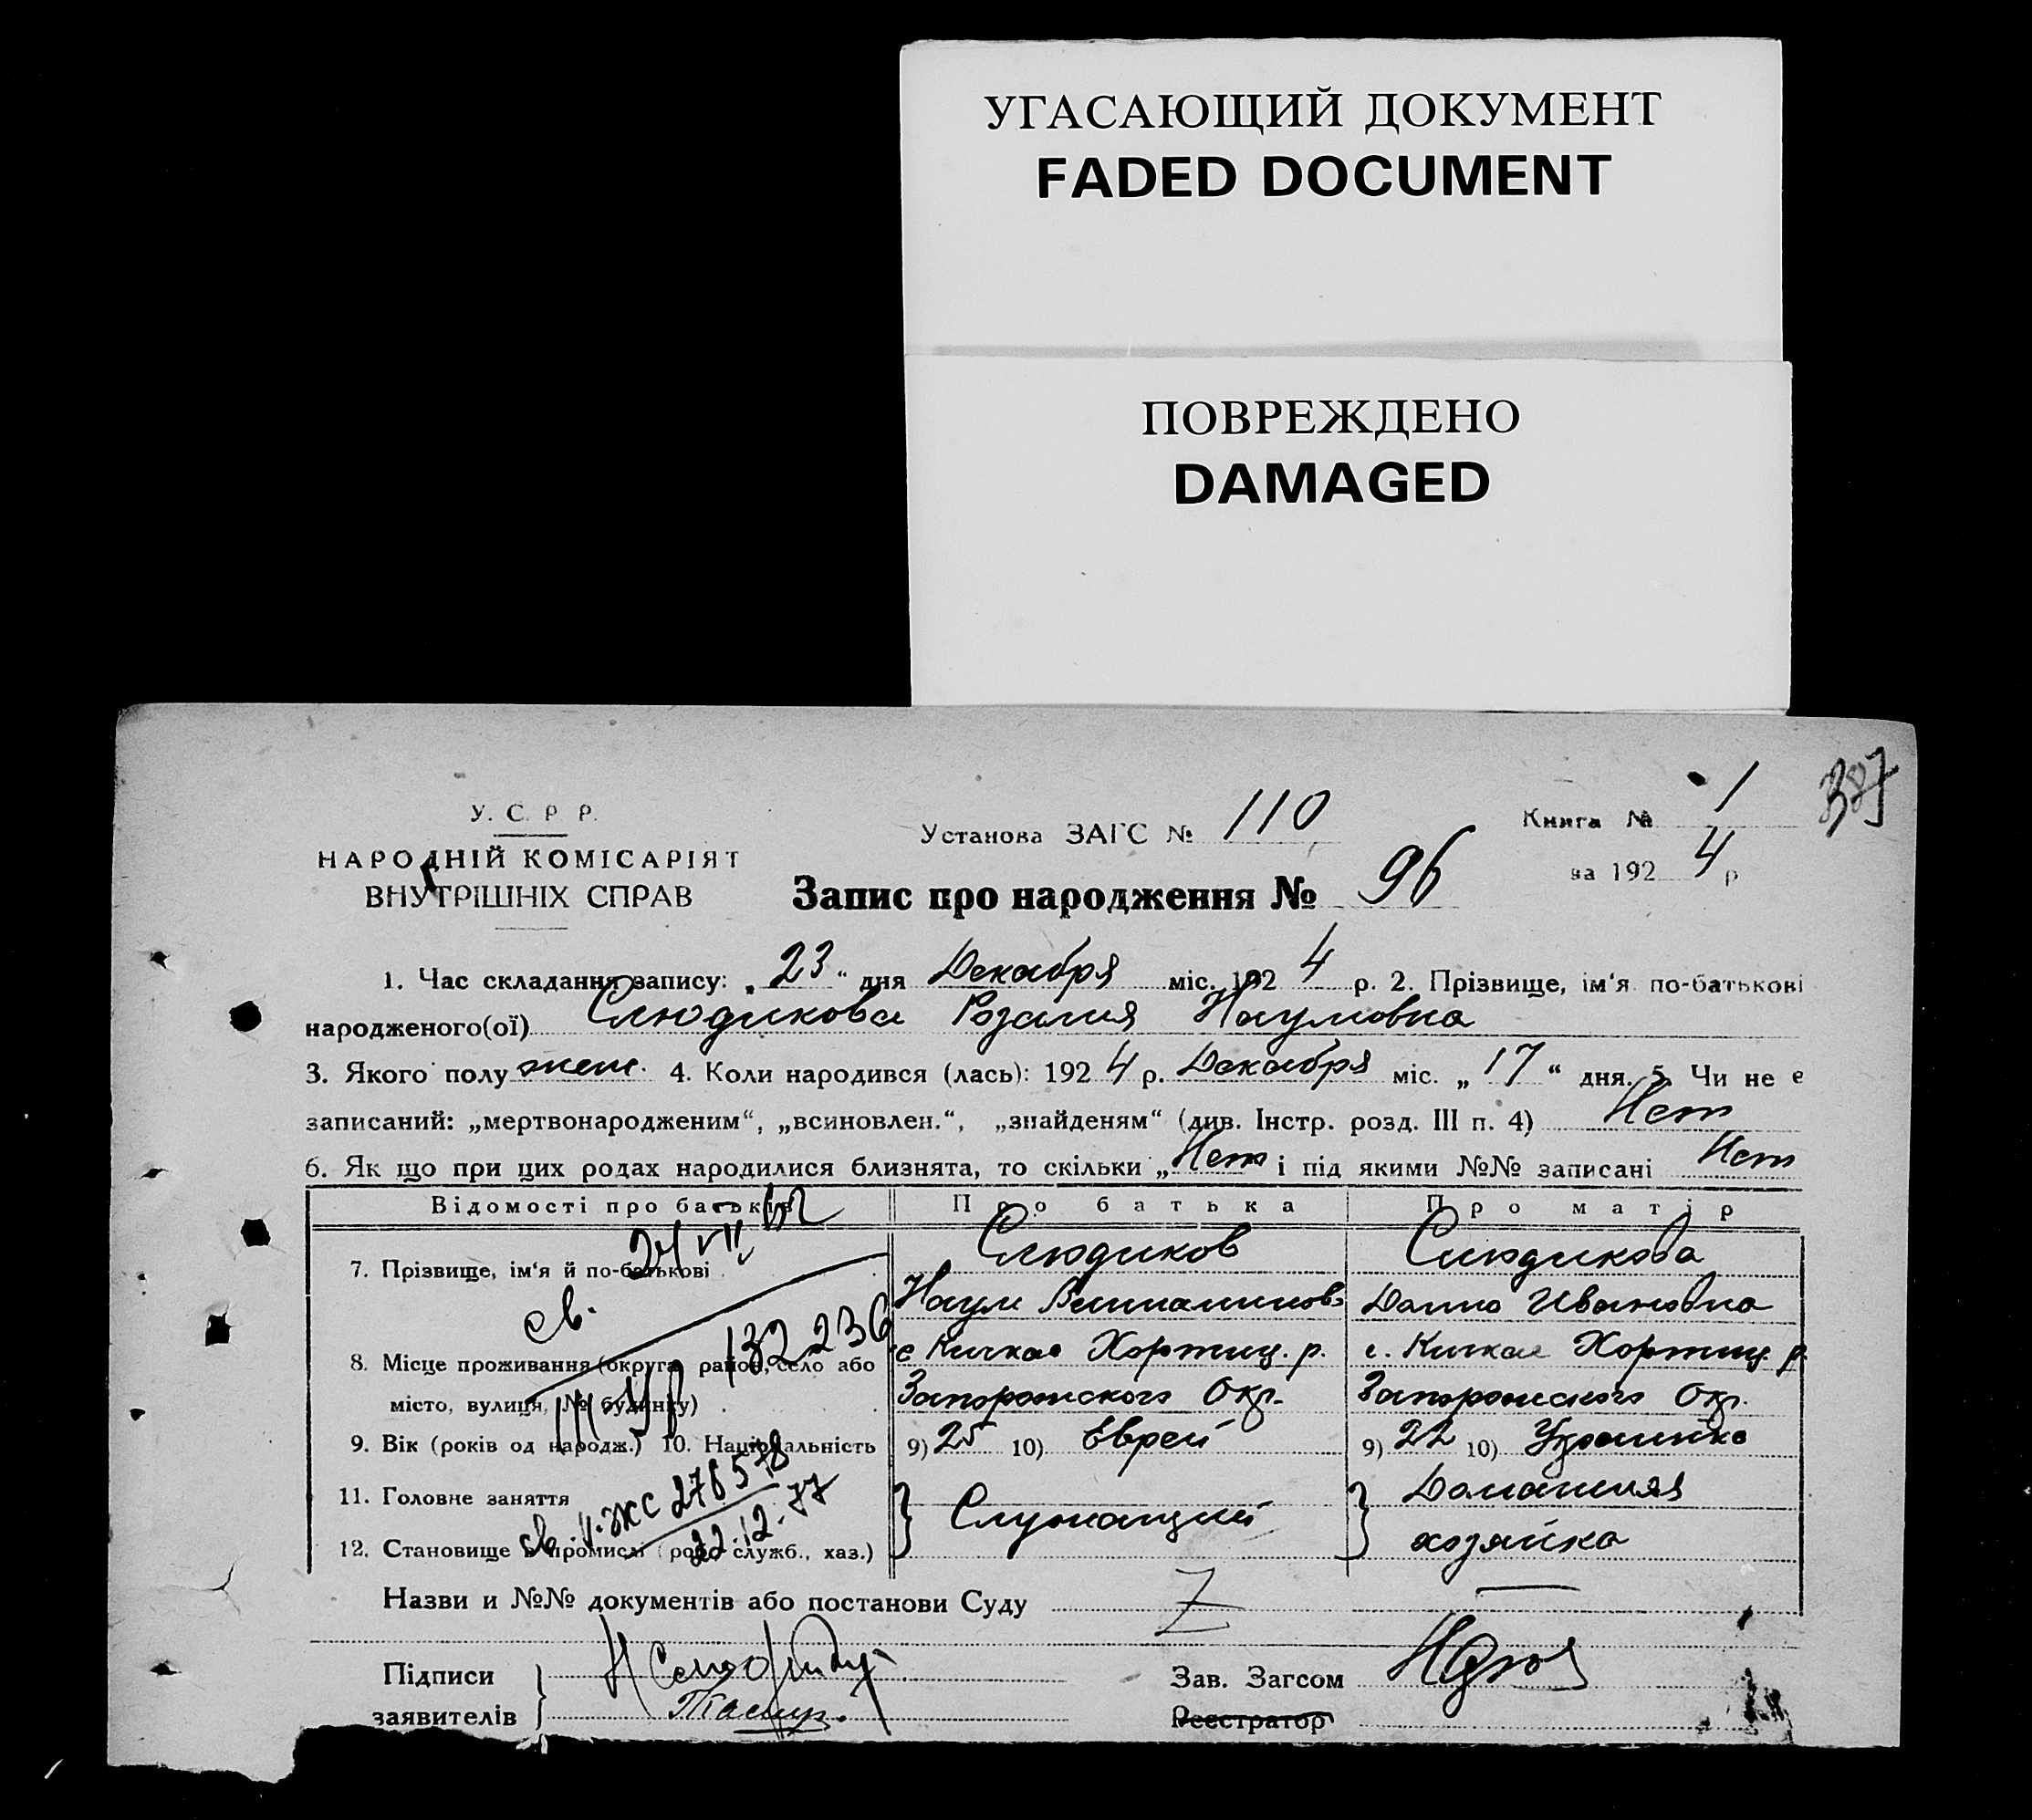 УГАСАЮЩИЙ ДОКУМЕНТ
FADED DOCUMENT
ПОВРЕЖДЕНО
DAMAGED
387
У. С. Р Р.
НАРОДНІЙ КОМІСАРІЯТ
ВНУТРІШНІХ СПРАВ
Установа ЗАГС № 110
Книга № 1
за 1924 р
Запис про народження № 96
1. Час складання запису: „23“ дня Декабря міс. 1924 р. 2. Прізвище, ім‘я по-батькові
народженого(ої) Слюдикова Розалия Наумовна
3. Якого полу жен. 4. Коли народився (лась): 1924 р. Декабря міс. „17“ дня. 5. Чи не е
записаний: „мертвонародженим“, „всиновлен.“, „знайденям“ (див. Інстр. розд. III п. 4) Нет
6. Як що при цих родах народилися близнята, то скільки „Нет і під якими №№ записані Нет
Відомості про батьків Про батька Про матір
7. Прізвище, ім‘я й по-батькові Слюдиков Слюдикова
Наум Ивановна
8. Місце проживання (округа, район, село або с Кичкас Хортиц. р. с. Кичкас Хортиц. р.
місто, вулиця, № будинку) Запорожского Окр. Запорожского Окр.
9. Вік (років од народж.) 10. Національність 9) 25 10) Еврей 9) 22 10) Украинка
11. Головне заняття Служащий Домашняя
12. Становище в промислі (роб., служб., хаз.) хозяйка
св.
132236
св. II-ЖС 276578
22.12.77
Назви и №№ документів або постанови Суду Z
Підписи
заявителів
Зав. Загсом
Реєстратор